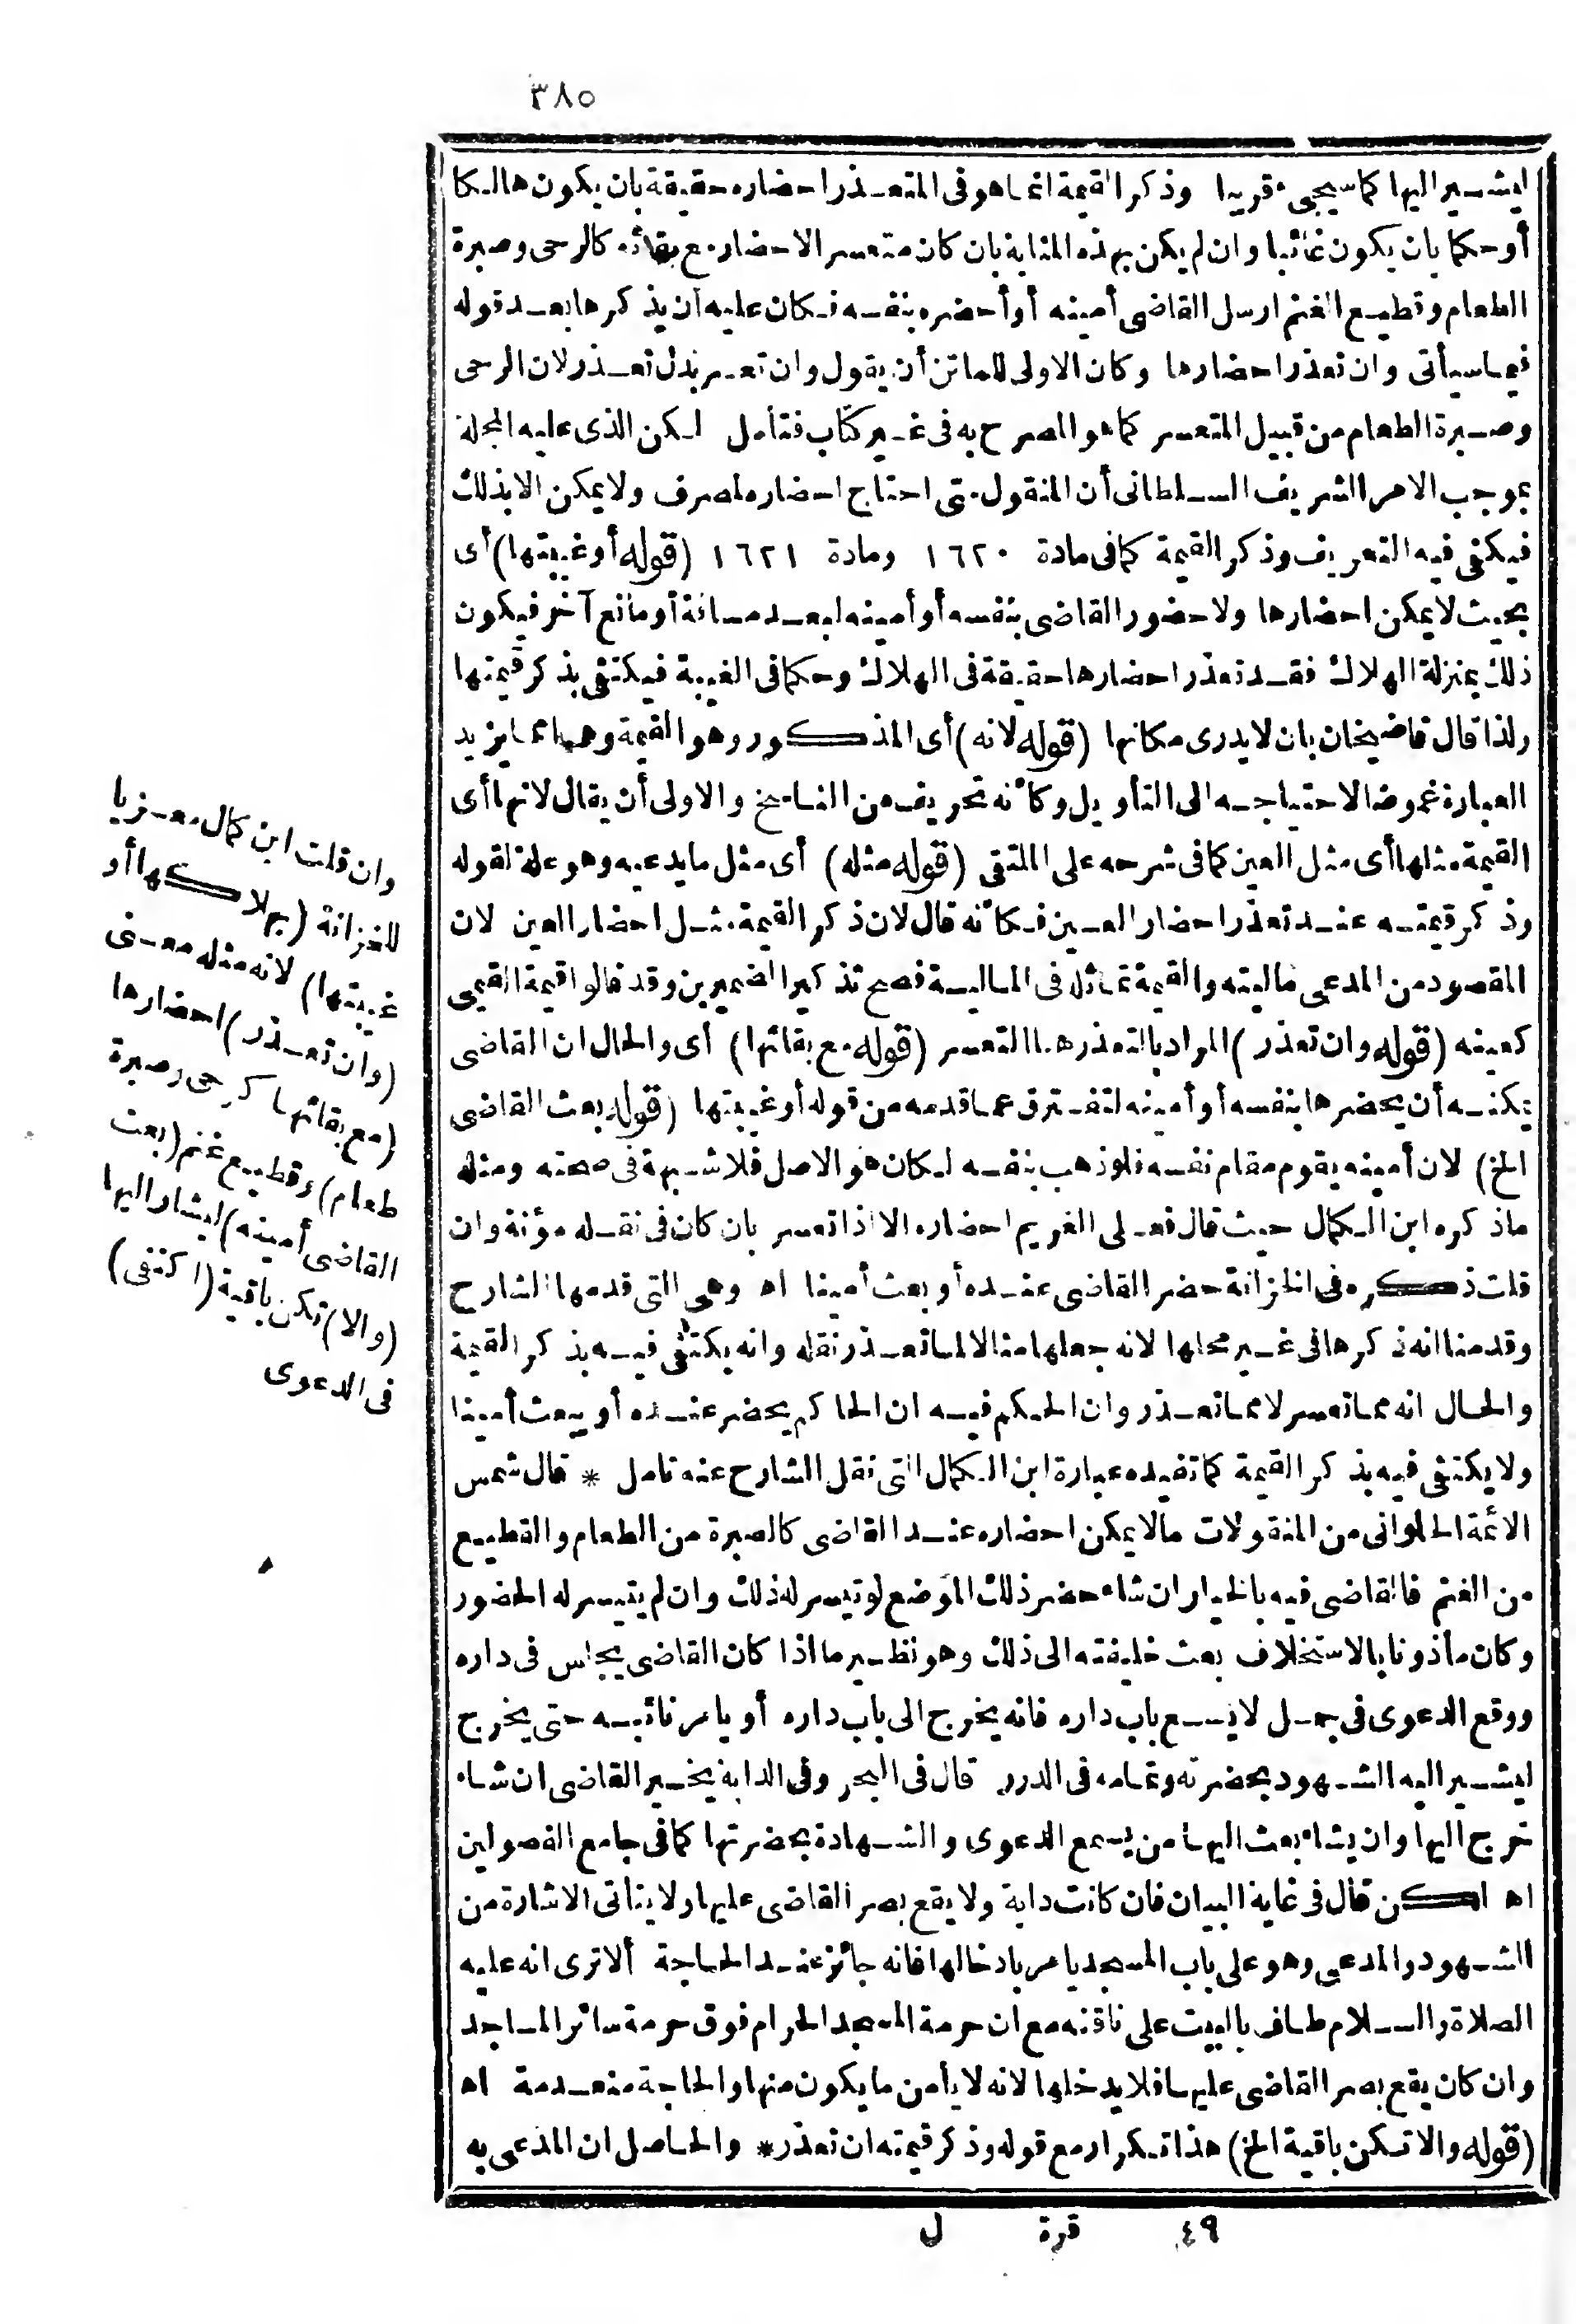 ٣٨٥
ليشير اليها كما سيجىء قريبا وذكر القيمة انما هو فى المتعذر احضاره حقيقة بان يكون هالكا
أو حكما بان يكون غائبا وان لم يكن بهذه المثابة بان كان متعسر الاحضار مع بقائه كالرحى وصبرة
الطعام وقطيع الغنم ارسل القاضى أمينه أو أحضره بنفسه فكان عليه أن يذكرها بعد قوله
فيما سيأتى وان تعذر احضارها وكان الاولى للماتن أن يقول وان تعسر بدل تعذر لان الرحى
وصبرة الطعام من قبيل المتعسر كما هو المصرح به فى غير كتاب فتأمل لكن الذى عليه المجلة
بموجب الامر الشريف السلطانى أن المنقول متى احتاج احضاره لمصرف ولا يمكن الا بذلك
فيكتفى فيه التعريف وذكر القيمة كما فى مادة ١٦٢٠ ومادة ١٦٢١ (قوله أو غيبتها) أى
بحيث لا يمكن احضارها ولا حضور القاضى بنفسه أو أمينه لبعد مسافة أو مانع آخر فيكون
ذلك بمنزلة الهلاك فقد تعذر احضارها حقيقة فى الهلاك وحكما فى الغيبة فيكتفى بذكر قيمتها
ولذا قال قاضيخان بان لا يدرى مكانها (قوله لانه) أى المذكور وهو القيمة وهى مما يزيد
العبارة غموضا لاحتياجه الى التأويل وكأنه تحريف من الناسخ والاولى أن يقال لانها أى
القيمة مثلها أى مثل العين كما فى شرحه على الملتقى (قوله مثله) أى مثل ما يدعيه وهو علة لقوله
وذكر قيمته عند تعذر احضار العين فكأنه قال لان ذكر القيمة مثل احضار العين لان
المقصود من المدعى ماليته والقيمة تماثله فى المالية فصح تذكير الضميرين وقد قالوا قيمة القيمى
كعينه (قوله وان تعذر) المراد بالتعذر هنا التعسر (قوله مع بقائها) أى والحال ان القاضى
يمكنه أن يحضرها بنفسه أو أمينه لتفترق عما قدمه من قوله أو غيبتها (قوله بعث القاضى
الخ) لان أمينه يقوم مقام نفسه فلو ذهب بنفسه لكان هو الاصل فلا شبهة فى صحته ومثله
ما ذكره ابن الكمال حيث قال فعلى الغريم احضاره الا اذا تعسر بان كان فى نقله مؤنة وان
قلت ذكره فى الخزانة حضر القاضى عنده أو بعث أمينا اه وهى التى قدمها الشارح
وقدمنا انه ذكرها فى غير محلها لانه جعلها مثالا لما تعذر نقله وانه يكتفى فيه بذكر القيمة
والحال انه مما تعسر لا مما تعذر وان الحكم فيه ان الحاكم يحضر عنده أو يبعث أمينا
ولا يكتفى فيه بذكر القيمة كما تفيده عبارة ابن الكمال التى نقل الشارح عنه تامل * قال شمس
الائمة الحلوانى من المنقولات ما لا يمكن احضاره عند القاضى كالصبرة من الطعام والقطيع
من الغنم فالقاضى فيه بالخيار ان شاء حضر ذلك الموضع لو تيسر له ذلك وان لم يتيسر له الحضور
وكان مأذونا بالاستخلاف بعث خليفته الى ذلك وهو نظير ما اذا كان القاضى يجلس فى داره
ووقع الدعوى فى جمل لا يسع باب داره فانه يخرج الى باب داره أو يامر نائبه حتى يخرج
ليشير اليه الشهود بحضرته وتمامه فى الدرر قال فى البحر وفى الدابة يخير القاضى ان شاء
خرج اليها وان يشاء بعث اليها من يسمع الدعوى والشهادة بحضرتها كما فى جامع الفصولين
اه لكن قال فى غاية البيان فان كانت دابة ولا يقع بصر القاضى عليها ولا يتأتى الاشارة من
الشهود والمدعى وهو على باب المسجد يامر بادخالها فانه جائز عند الحاجة ألا ترى انه عليه
الصلاة والسلام طاف بالبيت على ناقته مع ان حرمة المسجد الحرام فوق حرمة سائر المساجد
وان كان يقع بصر القاضى عليها فلا يدخلها لانه لا يأمن ما يكون منها والحاجة منعدمة اه
(قوله والا تكن باقية الخ) هذا تكرار مع قوله وذكر قيمته ان تعذر * والحاصل ان المدعى به
وان قلت ابن كمال معزيا
للخزانة (بهلاكها أو
غيبتها) لانه مثله معنى
(وان تعذر) احضارها
(مع بقائها كرحى وصبرة
طعام) وقطيع غنم (بعث
القاضى أمينه) ليشار اليها
(والا) تكن باقية (اكتفى)
فى الدعوى
٤٩ قرة ل